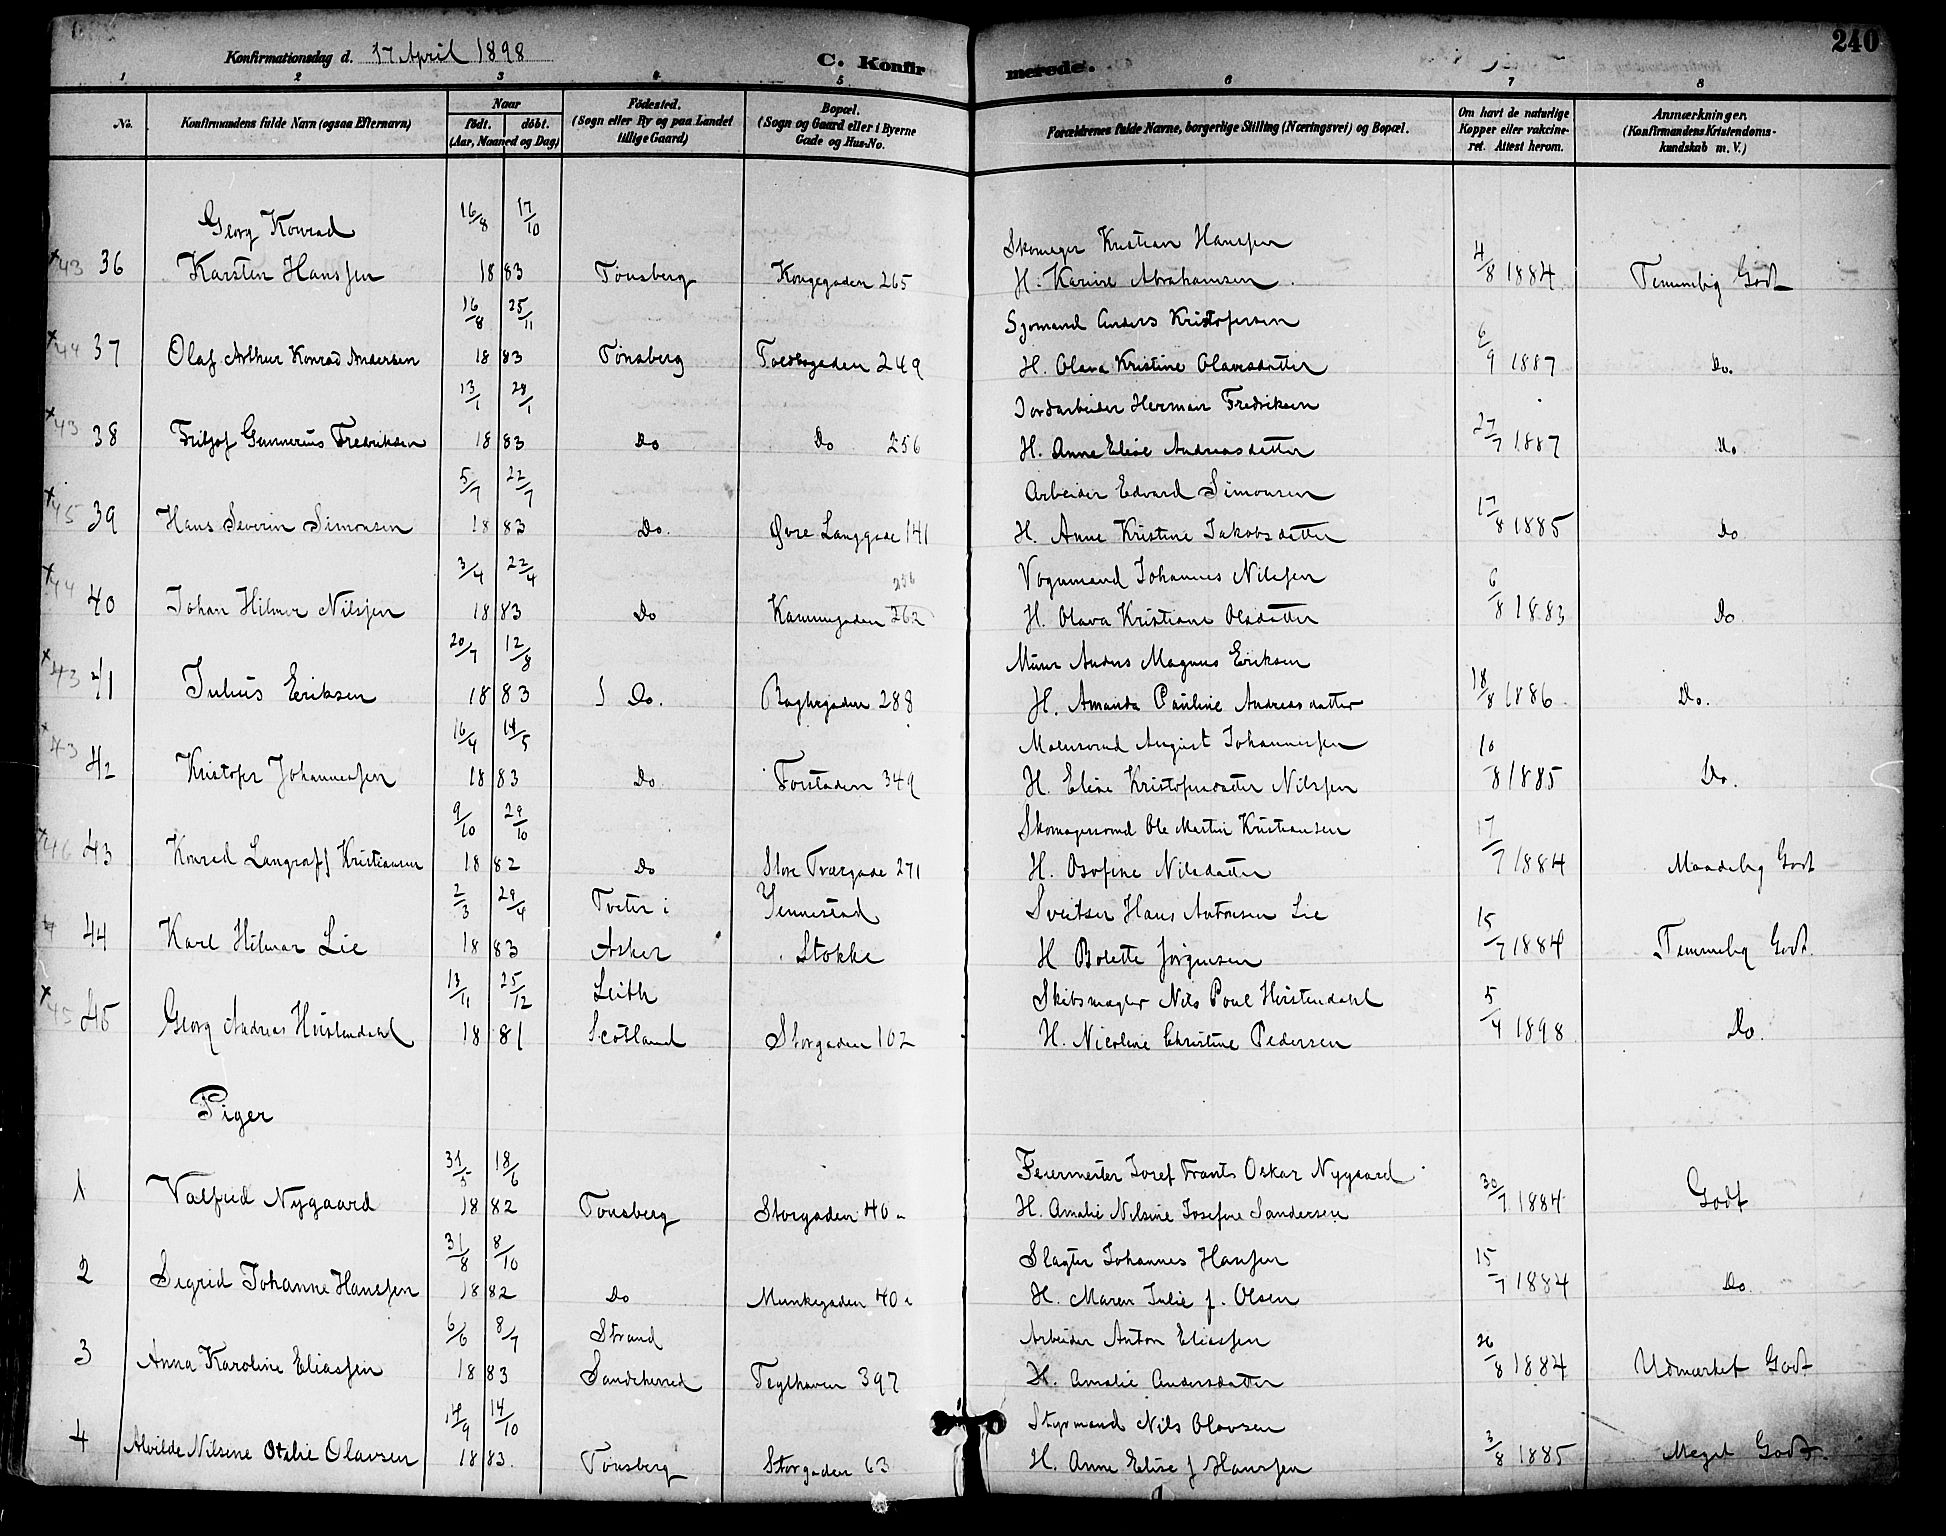 240
Konfirmationsdag d. 17 April 1898
C. Konfirmerede.
1 2 3 4 5 6 7 8
No.
Konfirmandens fulde Navn (ogsaa Efternavn)
Naar
født. døbt.
(Aar, Maaned og Dag)
Fødested.
(Sogn eller By og paa Landet
tillige Gaard)
Bopæl.
(Sogn og Gaard eller i Byerne
Gade og Hus-No.
Forældrenes fulde Navne, borgerlige Stilling (Næringsvei) og Bopæl.
Om havt de naturlige
Kopper eller vakcine-
ret. Attest herom.
Anmærkninger.
(Konfirmandens Kristendoms-
kundskab m. V.)
Georg Konrad 16/8 17/10 Skomager Kristian Hanssen
x43 36 Karsten Hanssen 18 83 Tønsberg Kongegaden 265 H. Karine Abrahamsen 4/8 1884 Temmelig Godt
16/8 25/11 Sjømand Anders Kristofersen
x44 37 Olaf Arthur Konrad Andersen 18 83 Tønsberg Toldbogaden 249 H. Olava Kristine Olavesdatter 6/9 1887 Do.
13/1 28/1 Jordarbeider Herman Fredriksen
x43 38 Fritjof Gunnerius Fredriksen 18 83 Do Do 256 H. Anne Elise Andreasdatter 27/7 1887 Do
5/7 22/7 Arbeider Edvard Simonsen
x45 39 Hans Severin Simonsen 18 83 Do. Øvre Langgade 141 H. Anne Kristine Jakobsdatter 17/8 1885 Do
3/4 22/4 256 Vognmand Johannes Nilssen
x44 40 Johan Hilmer Nilssen 18 83 Do Kammegaden 262 H. Olava Kristiane Olsdatter 6/8 1883 Do
20/7 12/8 Murer Anders Magnus Eriksen
x43 41 Julius Eriksen 18 83 Do. Baglergaden 288 H. Amanda Pauline Andreasdatter 18/8 1886 Do.
16/4 14/5 Malersvend August Johannessen
x43 42 Kristofer Johannessen 18 83 Do Forstaden 349 H. Elise Kristofersdatter Nilssen 10/8 1885 Do.
9/10 29/10 Skomagersvend Ole Martin Kristiansen
x46 43 Konrad Langraff Kristiansen 18 82 Do Store Tværgade 271 H. Osofine Nilsdatter 17/7 1884 Maadelig Godt
2/3 29/4 Tveter i Yennestad Sveitser Hans Antonsen Lie
44 Karl Hilmar Lie 18 83 Asker Stokke H Bolette Jørgensen 15/7 1884 Temmelig Godt.
13/11 25/12 Leith Skibsmægler Nils Poul Hvistendahl
x45 45 Georg Andreas Hvistendahl 18 81 Scotland Storgaden 102 H. Nicoline Christine Pedersen 5/4 1898 Do.
Piger
31/5 18/6 Feiermester Josef Frants Oskar Nygaard
1 Valfrid Nygaard 18 82 Tønsberg Storgaden 40 H. Amalie Nilsine Josefine Sandersen 30/7 1884 Godt
31/8 8/10 Slagter Johannes Hanssen
2 Sigrid Johanne Hanssen 18 82 Do Munkegaden 40 H. Maren Julie f. Olsen 15/7 1884 Do.
6/6 8/7 Strand Arbeider Anton Eliassen
3 Anna Karoline Eliassen 18 83 Sandeherred Teglhaven 397 H. Amalie Andersdatter 26/8 1884 Udmærket Godt
14/9 14/10 Styrmand Nils Olavsen
4 Alvilde Nilsine Otalie Olavsen 18 83. Tønsberg Storgaden 63 H. Anne Elise f Hanssen 3/8 1885 Meget Godt.